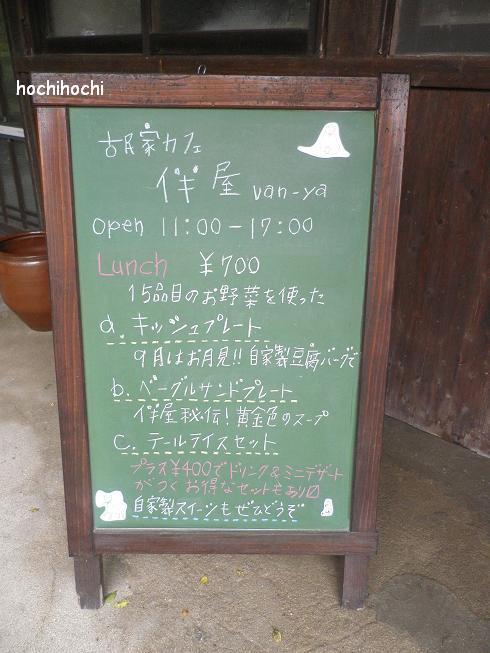 hochihochi
古民家カフェ
伴屋 van-ya
open 11:00-17:00
Lunch ¥700
15品目のお野菜を使った
a. キッシュプレート
9月はお月見!!自家製豆腐バーグで
b. ベーグルサンドプレート
伴屋秘伝!黄金色のスープ
c. テールライスセット
プラス¥400でドリンク&ミニデザート
がつくお得なセットもあり〼
自家製スイーツもぜひどうぞ